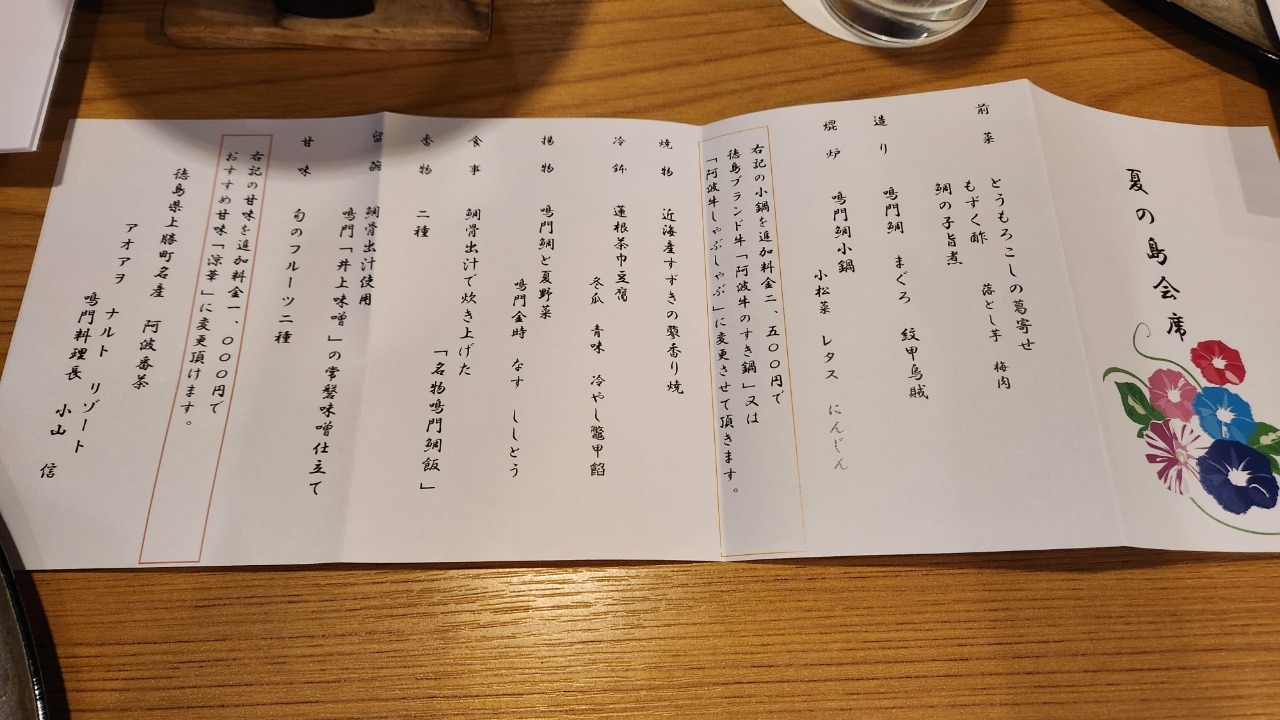 夏の島会席
前菜 どうもろこしの葛寄せ
もずく酢 落とし芋 梅肉
鯛の子旨煮
造り 鳴門鯛 まぐろ 紋甲烏賊
焜炉 鳴門鯛小鍋
小松菜 レタス にんじん
右記の小鍋を追加料金二、五〇〇円で
徳島ブランド牛「阿波牛のすき鍋」又は
「阿波牛しゃぶしゃぶ」に変更させて頂きます。
焼物 近海産すずきの蓼香り焼
冷鉢 蓮根茶巾豆腐
冬瓜 青味 冷やし鼈甲餡
揚物 鳴門鯛と夏野菜
鳴門金時 なす ししとう
食事 鯛骨出汁で炊き上げた
「名物鳴門鯛飯」
香物 二種
留椀 鯛骨出汁使用
鳴門「井上味噌」の常磐味噌仕立て
甘味 旬のフルーツ二種
右記の甘味を追加料金一、〇〇〇円で
おすすめ甘味「涼華」に変更頂けます。
徳島県上勝町名産 阿波番茶
アオアヲ ナルト リゾート
鳴門料理長 小山 信